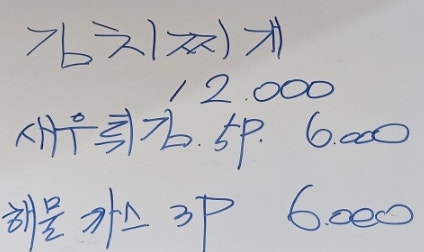 김치찌개
12.000
새우튀김. 5P. 6.000
해물까스 3P 6.000